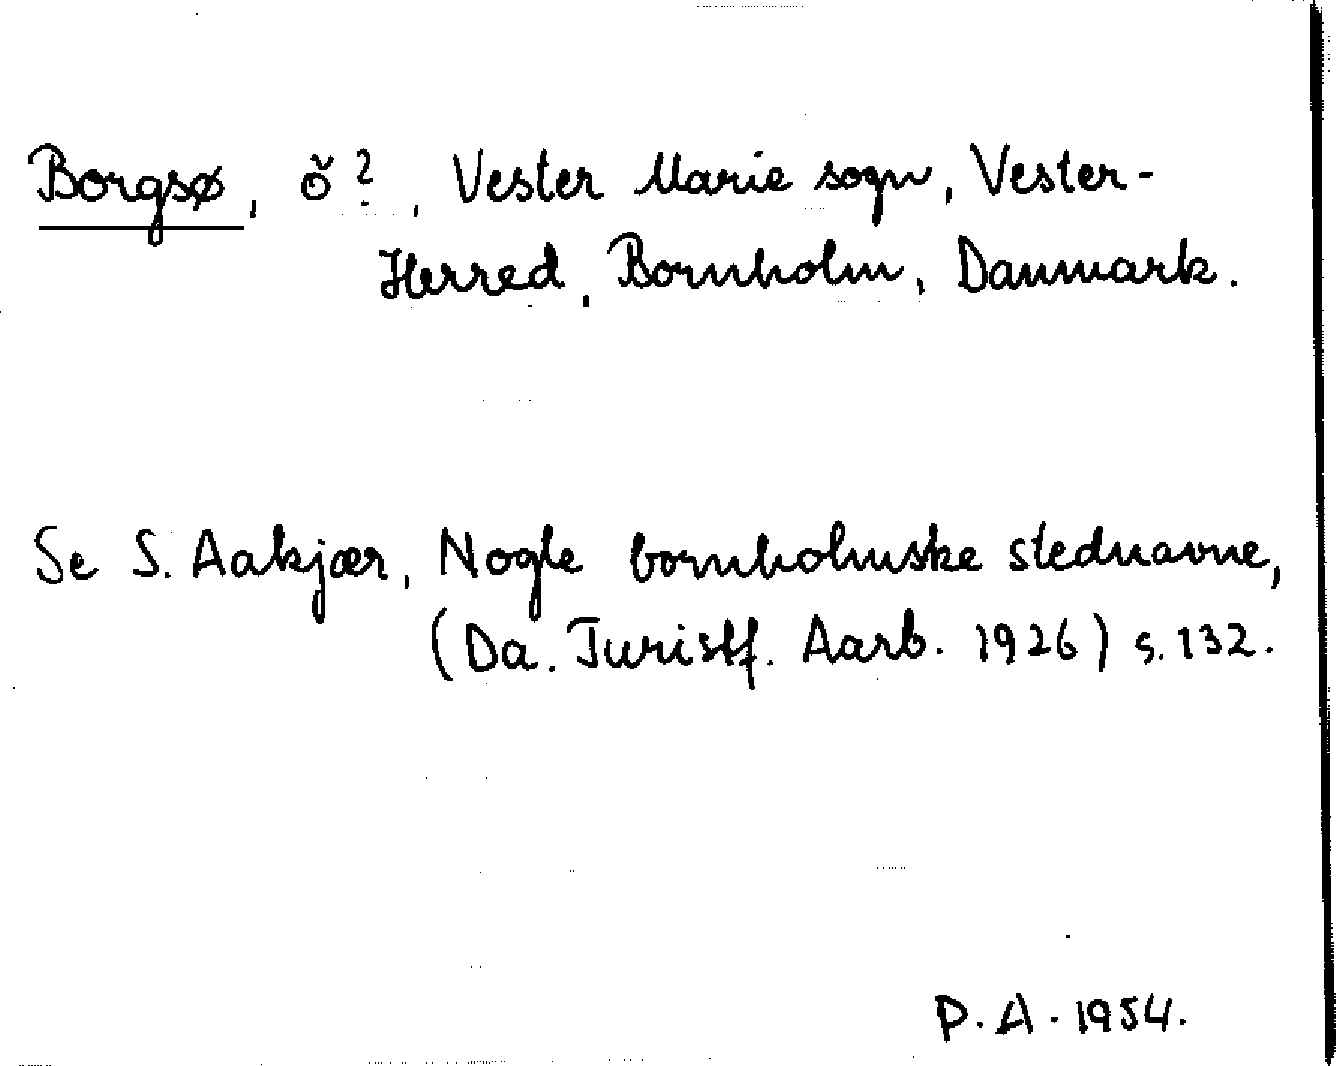 Borgsø, ö?, Vester Marie sogn, Vester-
Herred, Bornholm, Danmark.
Se S. Aakjær, Nogle bornholmske stednavne,
(Da. Juristf. Aarb. 1926) s. 132.
P.A. 1954.